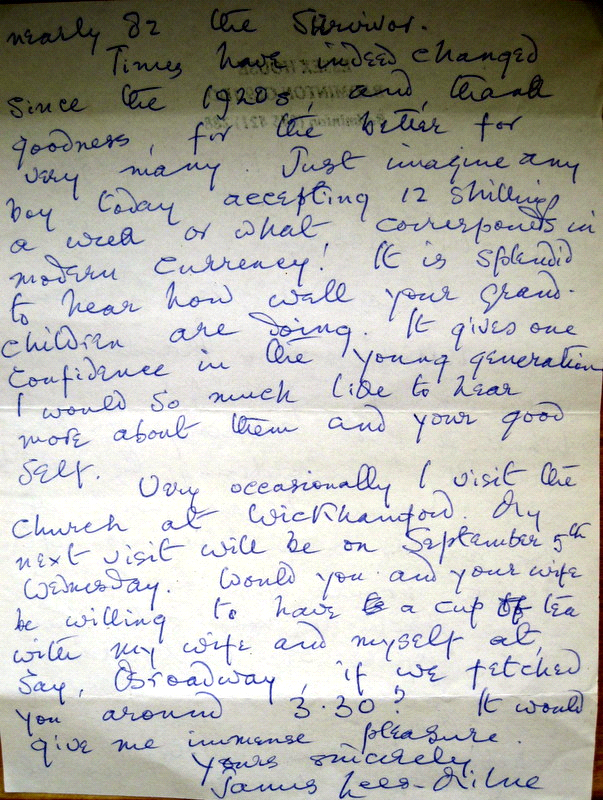 nearly 82 the survivor.
Times have indeed changed
since the 1920s, and, thank
goodness, for the better for
very many. Just imagine any
boy today accepting 12 shillings
a week or what corresponds in
modern currency! It is splendid
to hear how well your grand-
children are doing. It gives one
confidence in the young generation
I would so much like to hear
more about them and your good
self.
Very occasionally I visit the
church at Wickhamford. My
next visit will be on September 5th
Wednesday. Would you and your wife
be willing to have a cup of tea
with my wife and myself at,
say, Broadway, if we fetched
you around 3.30? It would
give me immense pleasure.
Yours sincerely
James Lees-Milne